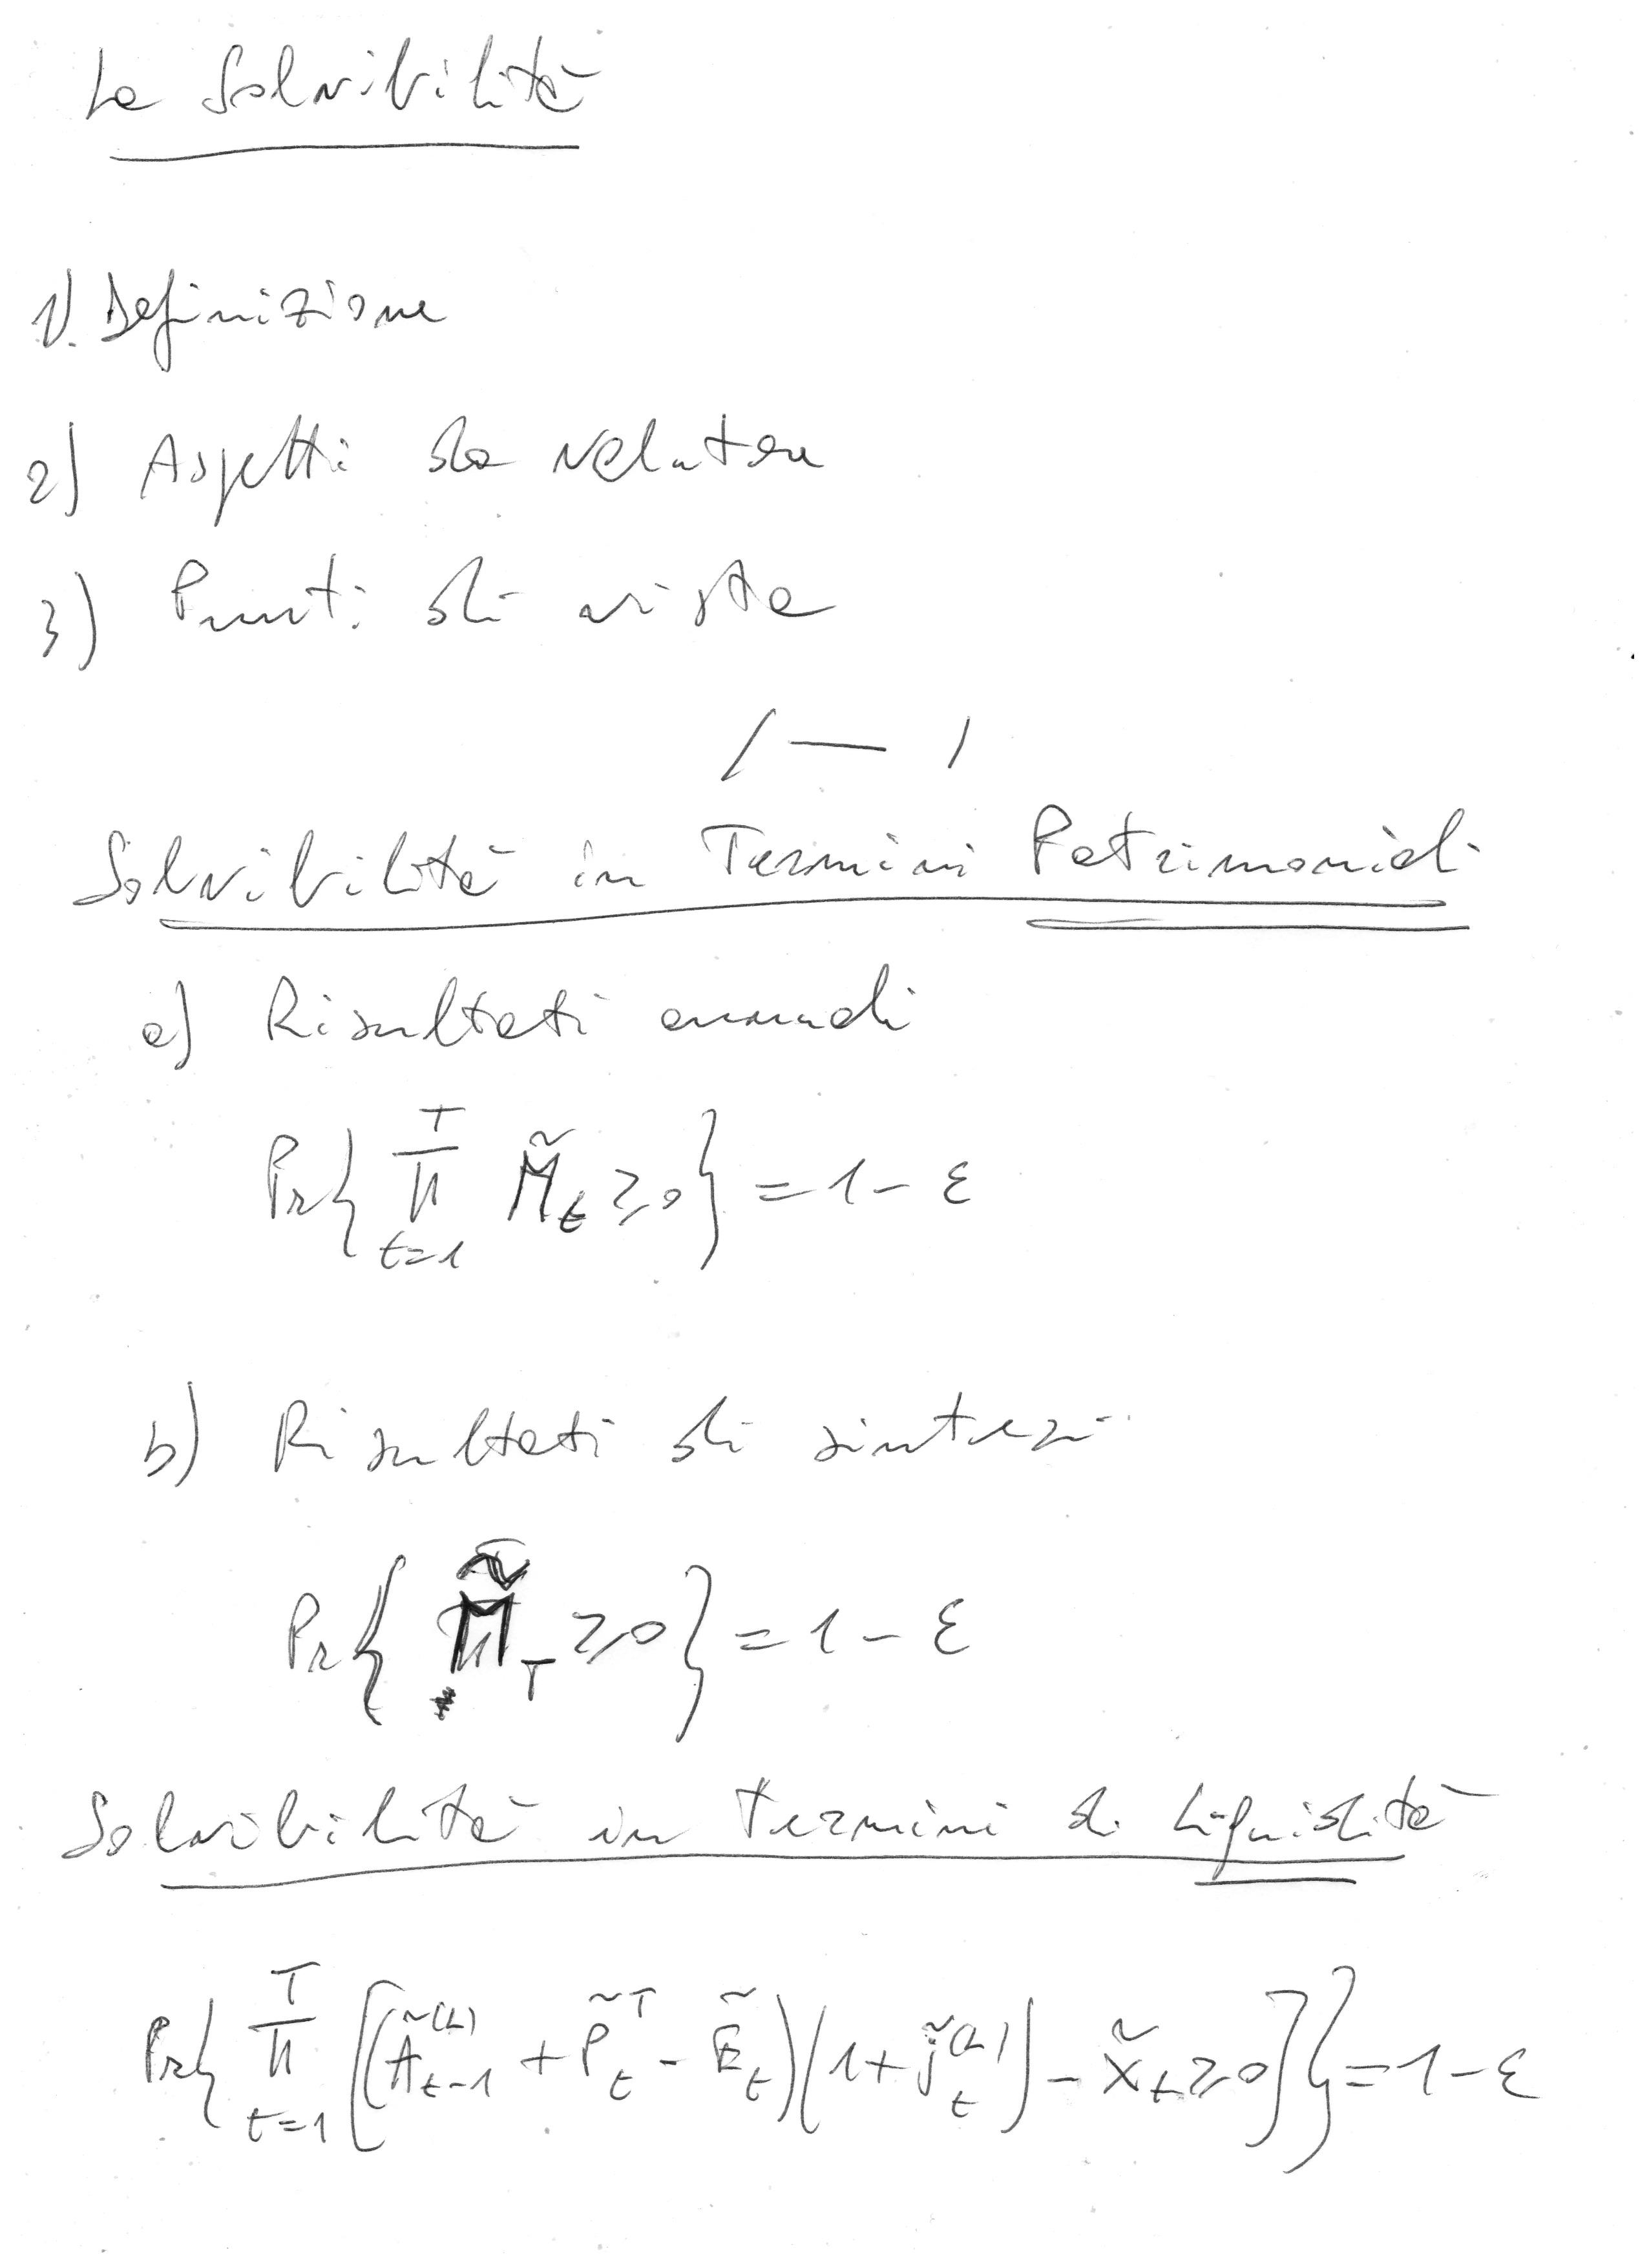 La Solvibilità
1). Definizione
2) Aspetti da valutare
3) Punti di vista
/ — /
Solvibilità in Termini Patrimoniali
a) Risultati annuali
Pr{ ∏_{t=1}^{T} M̃_t ≥ 0 } = 1 - ε
b) Risultati di sintesi
Pr{ M̃_T ≥ 0 } = 1 - ε
Solvibilità in termini di Liquidità
Pr{ ∏_{t=1}^{T} [(Ã_{t-1}^{(L)} + P̃_t^T - Ẽ_t)(1 + j̃_t^{(L)}) - X̃_t ≥ 0] } = 1 - ε